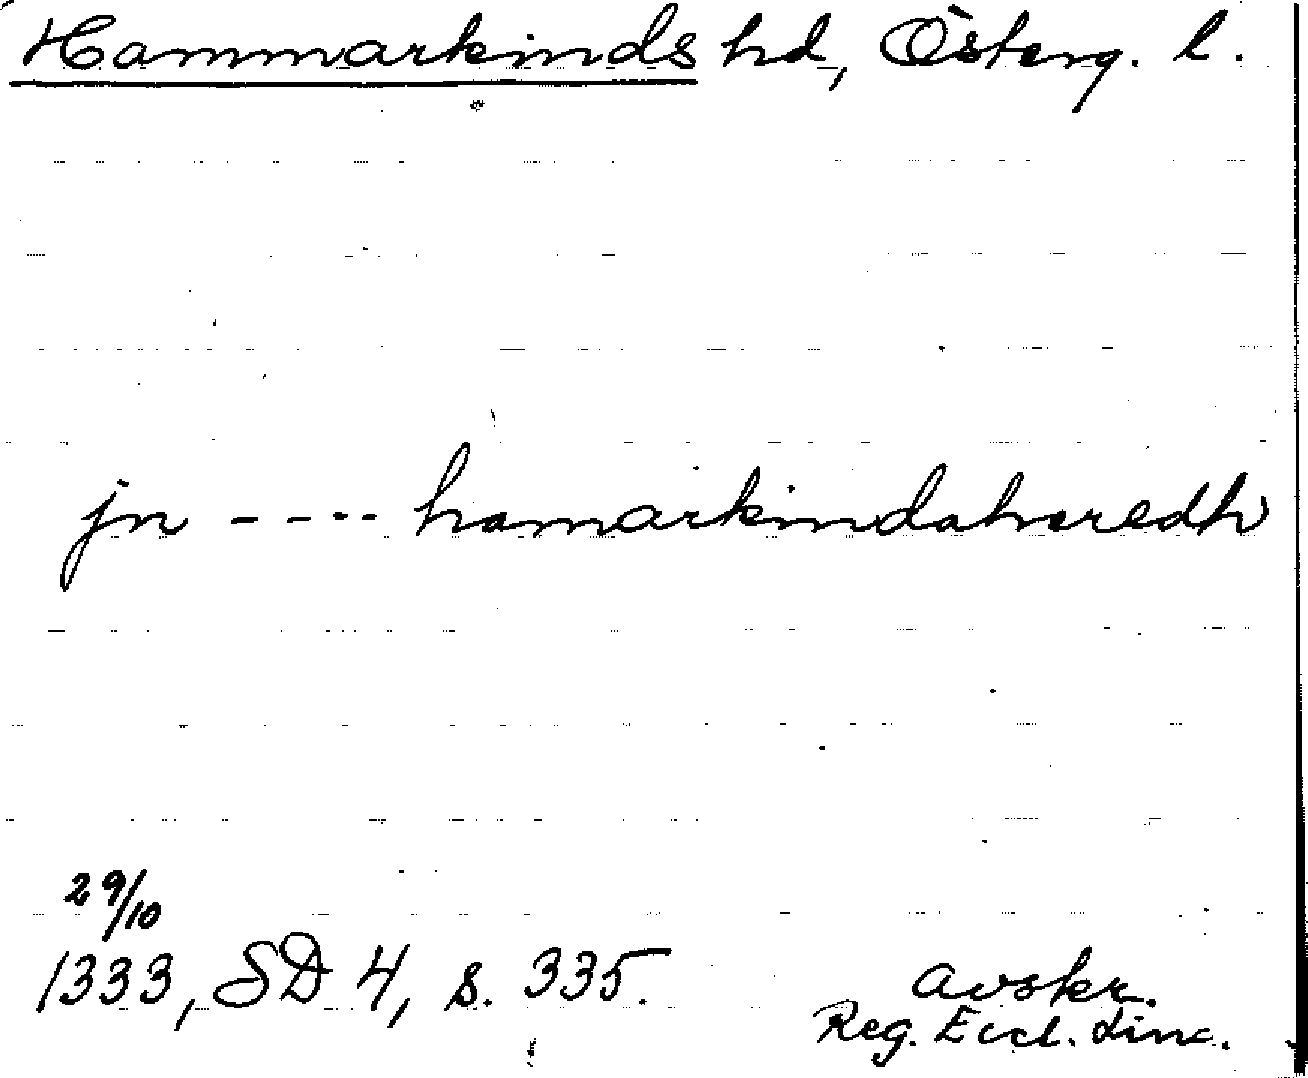 Hammarkinds hd, Österg. l.
jn ---- hamarkindaharedh
29/10
1333, SD 4, s. 335.
Avskr.
Reg. Eccl. Linc.